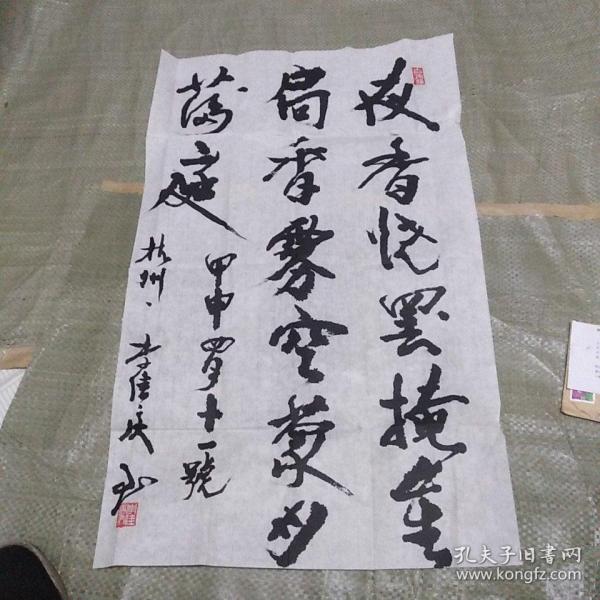 夜香烧罢掩重
扃香雾空蒙月
满庭
甲申四月十一號
杭州、李傳庆书
孔夫子旧书网
www.kongfz.com